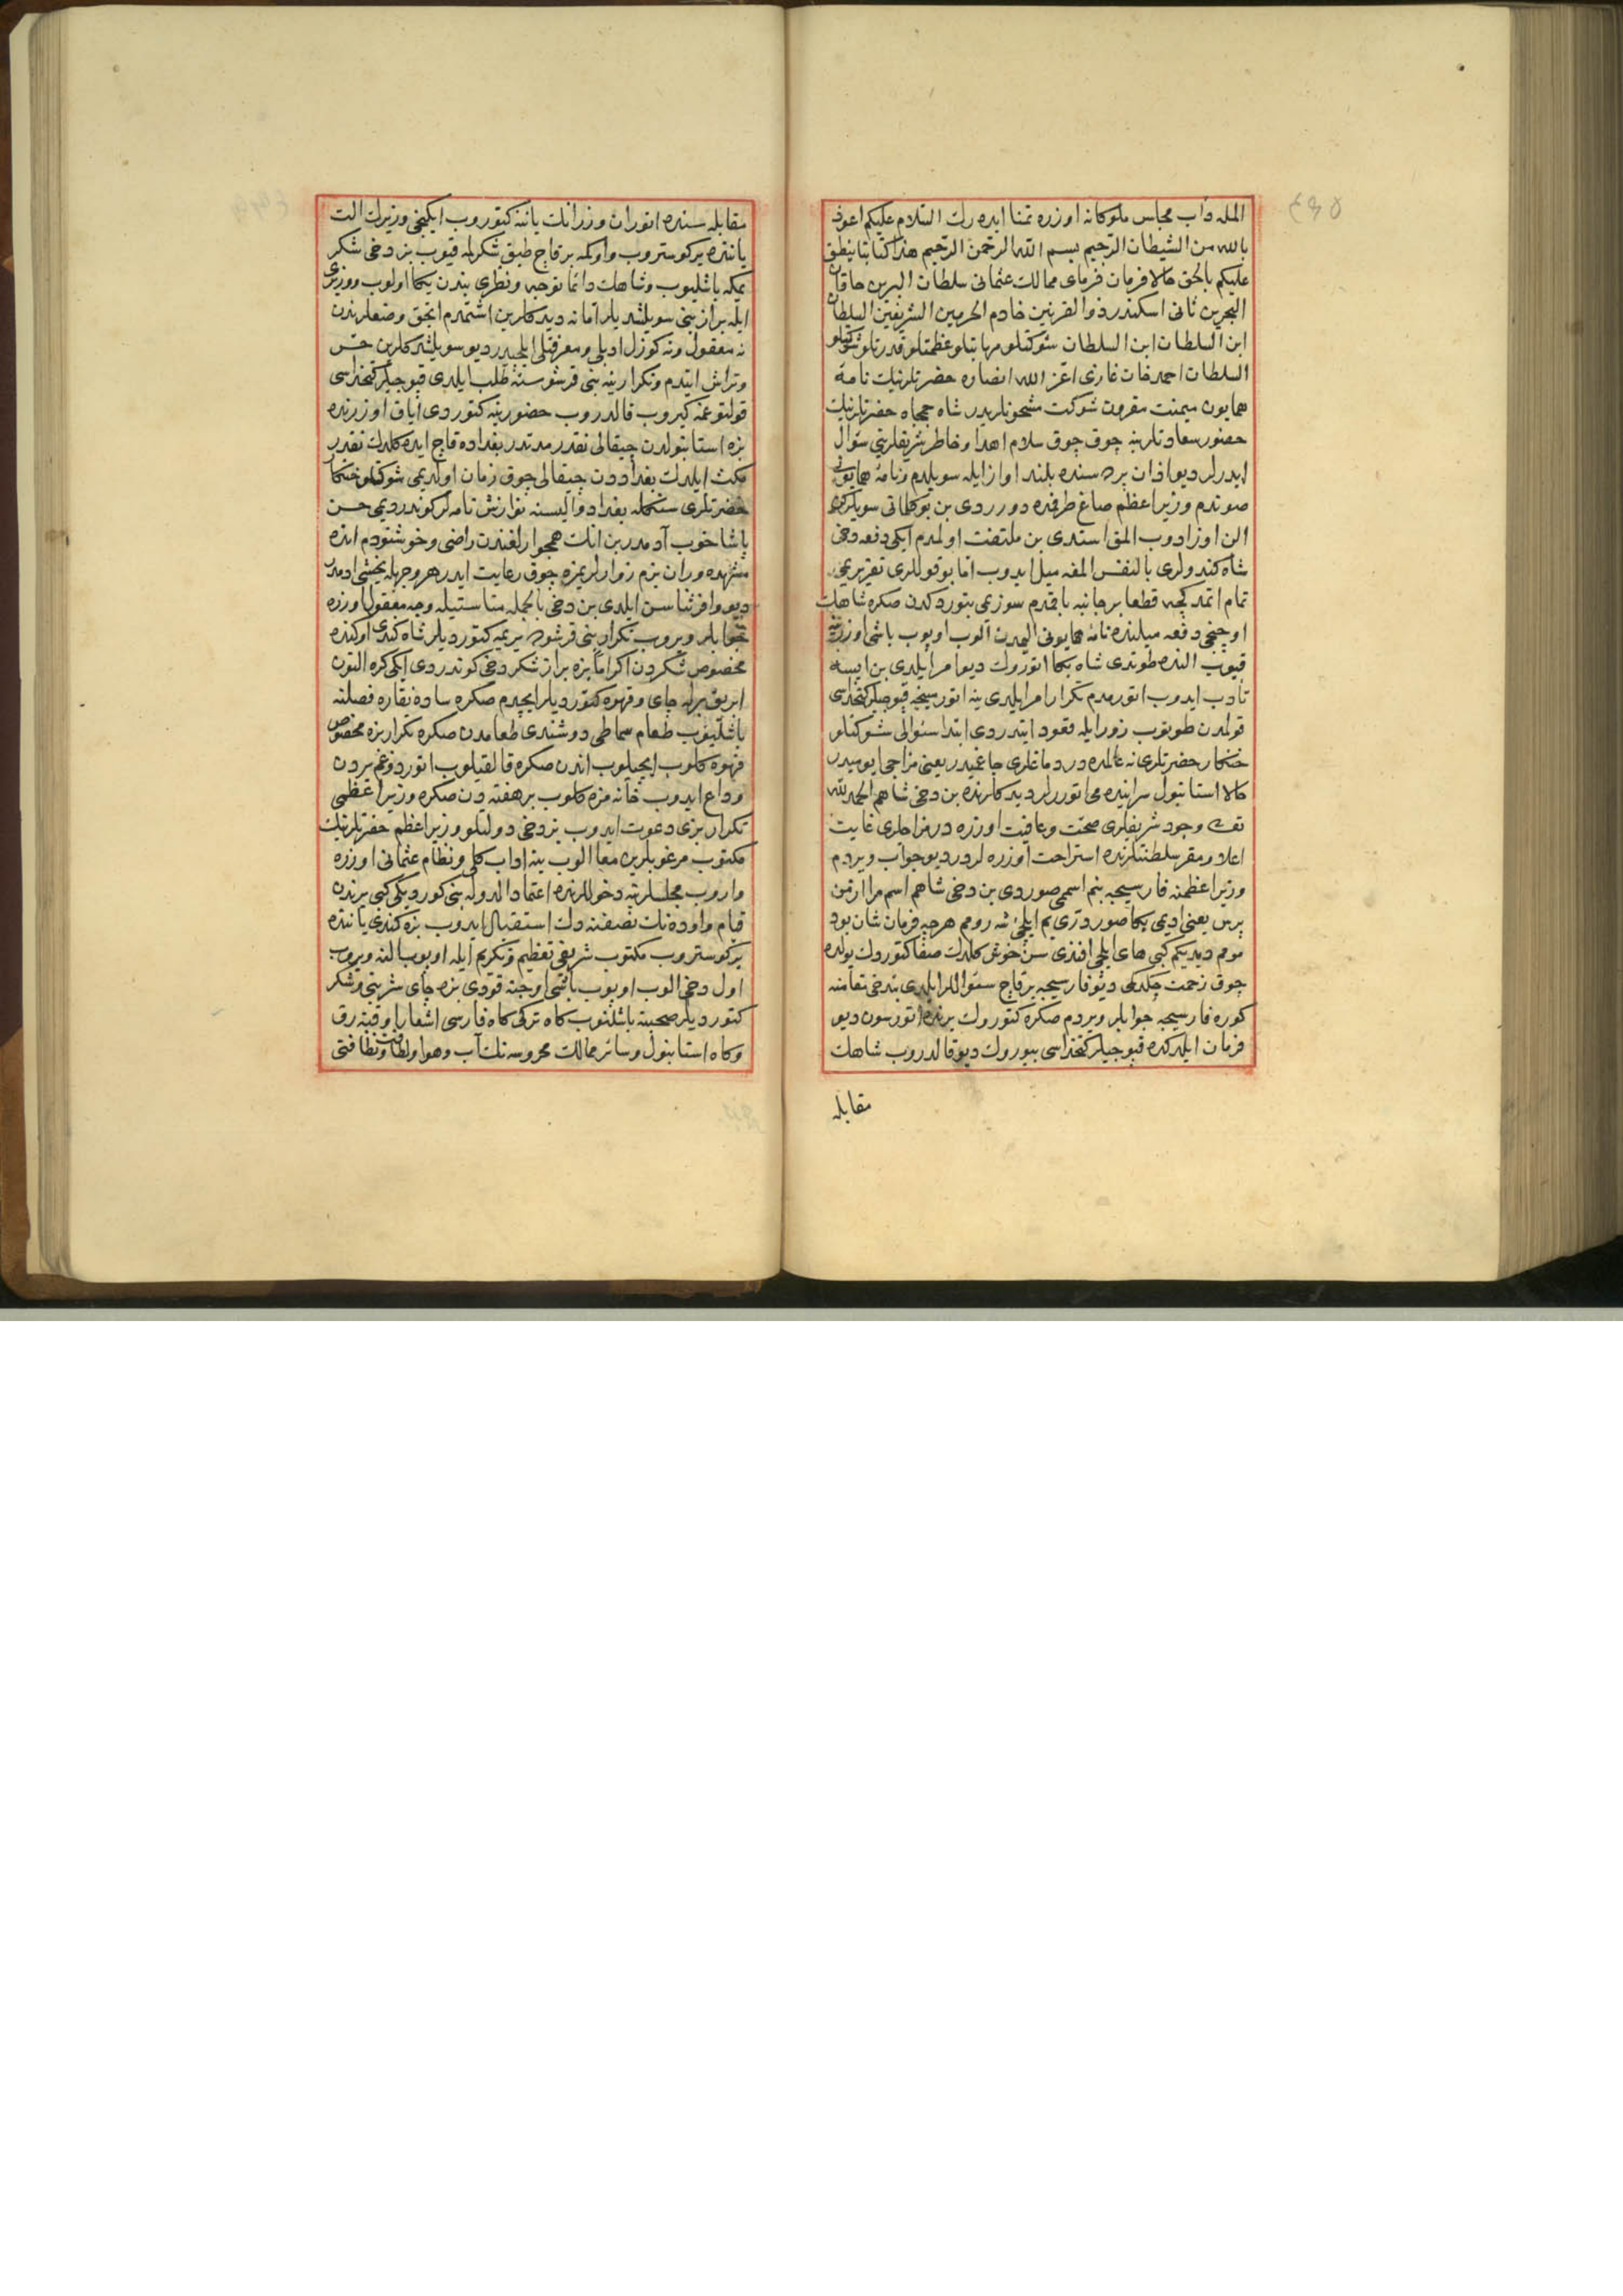 الله داب مجلس ملوكانه اوزره تمنا ايده رك السلام عليكم اعوذ
بالله من الشيطان الرجيم بسم الله الرحمن الرحيم هذا كتابنا ينطق
عليكم بالحق حالا فرمان فرماى ممالك عثمانى سلطان البرين خاقان
البحرين ثانى اسكندر ذو القرنين خادم الحرمين الشريفين السلطان
ابن السلطان ابن السلطان شوكتلو مهابتلو عظمتلو قدرتلو
السلطان احمد خان غازى اعز الله انصاره حضرتلرينك نامه
همايون ميمنت مقرون شوكت مشحونلريدر شاه جمجاه حضرتلرينك
حضور سعادتلرينه چوق چوق سلام اهدا و خاطر شريفلرينى سؤال
ايدرلر ديو اذان پرده سنده بلند اواز ايله سويلدم ونامه همايونى
صوندم وزير اعظم صاغ طرفمده دورردى بن بو كلماتى سويلركن
الن اوزادوب المق استدى بن ملتفت اولمدم ايكى دفعه دخى
شاه كندولرى بالنفس المغه ميل ايدوب اما بو قوللرى تقريريمى
تمام اتمدكجه قطعا بر جانبه باقمدم سوزيمى بتوردكدن صكره شاهك
اوچنجى دفعه ميلنده نامه همايونى اليمدن آلوب اوپوب باشى اوزرينه
قيوب النده طوتدى شاه بكا اتورك ديو امر ايلدى بن ايسه
تأدب ايدوب اتورمدم تكرار امر ايلدى ينه اتورميجه قپوجيلر كتخداسى
قولمدن طوتوب زور ايله قعود ايتدردى ابتدا سئوالى شوكتلو
خنكار حضرتلرى نه عالمده در دماغلرى چاغميدر يعنى مزاجى ايوميدر
حالا استانبول سراينده مى اتوررلر ديدكلرنده بن دخى شاهم الحمد لله
تعالى وجود شريفلرى صحت وعافيت اوزره در مزاجلرى غايت
اعلا در مقر سلطنتلرنده استراحت اوزره لردر ديو جواب ويردم
وزير اعظمنه فارسيجه بنم اسممى صوردى بن دخى شاهم اسم مرا از من
برس يعنى اديمى بكا صور درى يم ايلچئ شه رومم هرچه فرمان شان بود
مومم ديديكم كبى هاى ايلچى افندى سن خوش كلدك صفا كتوردك يولده
چوق زحمت چكدكمى ديو فارسيجه بر قاچ سئواللر ايلدى بن دخى مقامنه
كوره فارسيجه جوابلر ويردم صكره كتورك يرنده اتورسون ديو
فرمان ايلدكده قپوجيلر كتخداسى بيورك ديو قالدروب شاهك
مقابله
مقابله سنده اتوران وزرانك يانه كتوروب ايكنجى وزيرك الت
ياننده ير كوستروب واوكمه بر قاچ طبق شكرلمه قيوب بز دخى شكر
يمكه باشليوب وشاهك دائما توجه ونظرى بندن يكا اولوب ووزيرى
ايله براز بنى سويلشديلر اما نه ديدكلرين اشتمدم انجق وضعلرندن
نه معقول ونه كوزل ادبلى ومعرفتلى ايلچيدر ديو سويلشدكلرين حس
وتراش ايتدم وتكرار ينه بنى قرشوسنه طلب ايلدى قپوجيلر كتخداسى
قولتوغمه كيروب قالدروب حضورينه كتوردى اياق اوزرنده
بزه استانبولدن چيقالى نقدر مدتدر بغداده قاچ ايده كلدك نقدر
مكث ايلدك بغداددن چيقالى چوق زمان اولديمى شوكتلو خنكار
حضرتلرى سنكله بغداد واليسنه نوازش نامه لر كوندرديمى حسن
پاشا خوب آدمدر بن انك همجوارلغندن راضى وخوشنودم انده
مشهده وران بزم زوارلريمزه چوق رعايت ايدر هر وجهله يخشى ادمدر
ديو وافر ثناسن ايلدى بن دخى بالجمله مناسبتيله وجه معقول اوزره
جوابلر ويروب تكرار بنى قرشوده يريمه كتورديلر شاه كندى اوكنده
مخصوص شكردن اكراما بزه براز شكر دخى كوندردى ايكى كره التون
ابريق برله چاى وقهوه كتورديلر ايچدم صكره ساده نقاره فصلنه
باشليوب طعام سماطى دوشندى طعامدن صكره تكرار بزه مخصوص
قهوه كلوب ايچيلوب اندن صكره قالقيلوب اتوردوغم يردن
وداع ايدوب خانه مزه كلوب بر هفته دن صكره وزير اعظمى
تكرار بزى دعوت ايدوب بز دخى دولتلو وزير اعظم حضرتلرينك
مكتوب مرغوبلرين معا الوب ينه اداب كلى ونظام عثمانى اوزره
واروب مجلسلرينه دخوللرنده اعتماد الدوله بنى كورديكى كبى يرندن
قيام واوده نك نصفنه دك استقبال ايدوب بزه كندى ياننده
ير كوستروب مكتوب شريفى تعظيم وتكريم ايله اوپوب النه ويروب
اول دخى الوب اوپوب باشى اوجنه قودى بزه چاى شربتى وشكر
كتورديلر صحبته باشلنوب كاه تركى كاه فارسى اشعار اوقينه رق
وكاه استانبول وسائر ممالك محروسه نك آب وهوا ولطافت ونظافتى